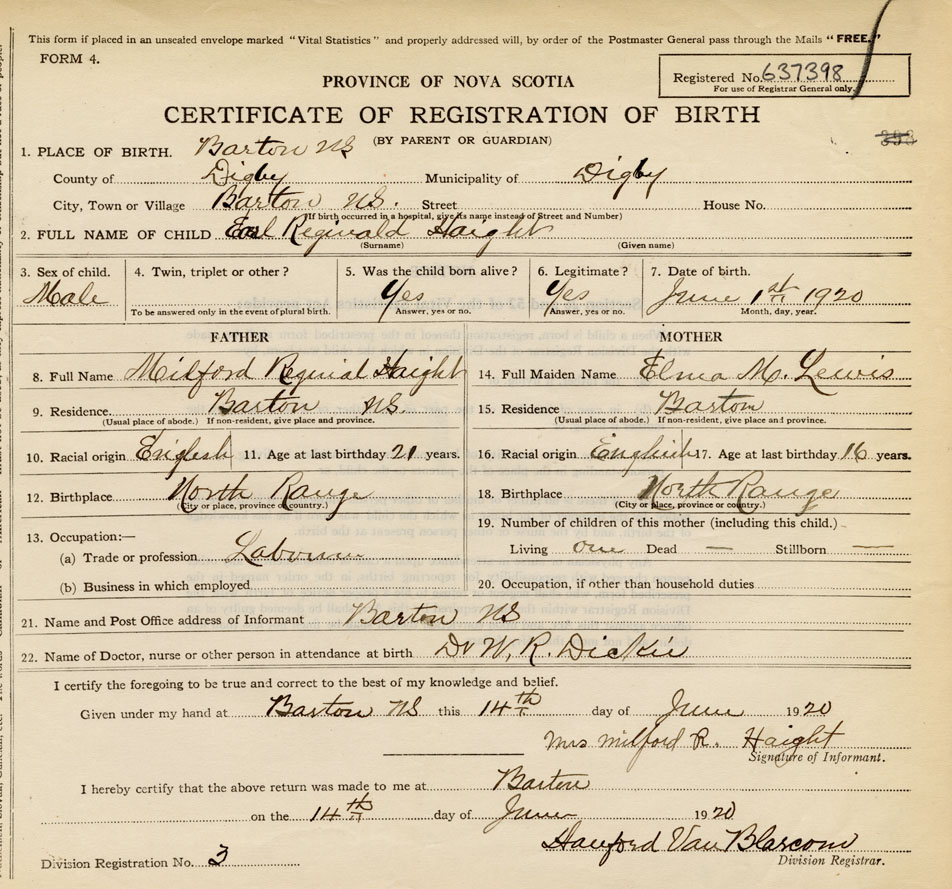 This form if placed in an unsealed envelope marked "Vital Statistics" and properly addressed will, by order of the Postmaster General pass through the Mails "FREE."
FORM 4.
Registered No. 637398
For use of Registrar General only.
PROVINCE OF NOVA SCOTIA
CERTIFICATE OF REGISTRATION OF BIRTH
(BY PARENT OR GUARDIAN)
1. PLACE OF BIRTH. Barton NS
County of Digby Municipality of Digby
City, Town or Village Barton NS. Street House No.
(If birth occurred in a hospital, give its name instead of Street and Number)
2. FULL NAME OF CHILD Earl Reginald Haight
(Surname) (Given name)
3. Sex of child. 4. Twin, triplet or other? 5. Was the child born alive? 6. Legitimate? 7. Date of birth.
Male Yes Yes June 1st 1920
To be answered only in the event of plural birth. Answer, yes or no. Answer, yes or no. Month, day, year.
FATHER MOTHER
8. Full Name Milford Reginal Haight 14. Full Maiden Name Elma M. Lewis
9. Residence Barton NS. 15. Residence Barton
(Usual place of abode.) If non-resident, give place and province. (Usual place of abode.) If non-resident, give place and province.
10. Racial origin English 11. Age at last birthday 21 years. 16. Racial origin English 17. Age at last birthday 16 years.
12. Birthplace North Range 18. Birthplace North Range
(City or place, province or country.) (City or place, province or country.)
13. Occupation:— 19. Number of children of this mother (including this child.)
(a) Trade or profession Labourer Living one Dead — Stillborn —
(b) Business in which employed 20. Occupation, if other than household duties
21. Name and Post Office address of Informant Barton NS
22. Name of Doctor, nurse or other person in attendance at birth Dr W. R. Dickie
I certify the foregoing to be true and correct to the best of my knowledge and belief.
Given under my hand at Barton NS this 14th day of June 1920
Mrs Milford R. Haight
Signature of Informant.
I hereby certify that the above return was made to me at Barton
on the 14th day of June 1920
Hanford Van Blarcom
Division Registration No. 3 Division Registrar.